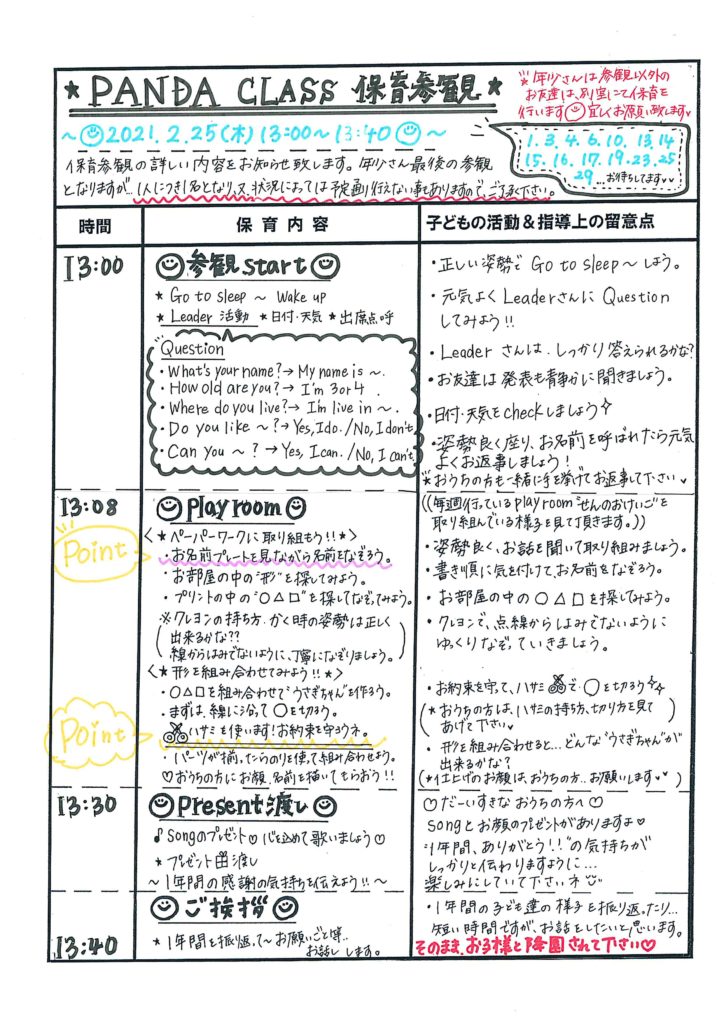 ★ PANDA CLASS 保育参観 ★
☆年少さんは参観以外の
お友達は、別室にて保育を
行います☺宜しくお願い致します♥
～☺2021.2.25(木) 13:00～13:40☺～
1. 3. 4. 6. 10. 13. 14
15. 16. 17. 19. 23. 25
29 …お待ちしてます♥♥
保育参観の詳しい内容をお知らせ致します。年少さん最後の参観
となりますが…1人につき1名となり、又、状況によっては予定通り行えない事もありますので、ご了承下さい。
時間
保育内容
子どもの活動&指導上の留意点
13:00
☺参観start☺
★ Go to sleep ～ Wake up
★ Leader 活動 ★日付・天気 ★出席点呼
Question
・What's your name?→ My name is ～.
・How old are you?→ I'm 3or4.
・Where do you live?→ I'm live in ～.
・Do you like ～?→ Yes, I do./No, I don't.
・Can you ～?→ Yes, I can./No, I can't.
・正しい姿勢で Go to sleep～しよう。
・元気よくLeaderさんに Question
してみよう!!
・Leader さんは、しっかり答えられるかな?
・お友達は発表も静かに聞きましょう。
・日付・天気をcheckしましょう✧
・姿勢良く座り、お名前を呼ばれたら元気
よくお返事しましょう!
☆おうちの方も一緒に手を挙げてお返事して下さい♥
13:08
☺Play room☺
Point
<★ペーパーワークに取り組もう!!★>
・お名前プレートを見ながら名前をなぞろう。
・お部屋の中の"形"を探してみよう。
・プリントの中の"○△□"を探してなぞってみよう。
※クレヨンの持ち方、かく時の姿勢は正しく
出来るかな??
線からはみでないように、丁寧になぞりましょう。
<★形を組み合わせてみよう!!★>
・○△□を組み合わせて"うさぎちゃん"を作ろう。
・まずは、線に沿って○を切ろう。
Point
ハサミを使います!お約束を守ろうネ。
・パーツが揃ったらのりを使って組み合わせよう。
♡おうちの方にお顔、名前を描いてもらおう!!
((毎週行っているplay room"せんのおけいこ"を
取り組んでいる様子を見て頂きます。))
・姿勢良く、お話を聞いて取り組みましょう。
・書き順に気を付けて、お名前をなぞろう。
・お部屋の中の○△□を探してみよう。
・クレヨンで、点線からはみでないように
ゆっくりなぞっていきましょう。
・お約束を守って、ハサミで○を切ろう✧✧
(★おうちの方は、ハサミの持ち方、切り方を見て
あげて下さい♥)
・形を組み合わせると…どんな"うさぎちゃん"が
出来るかな?
(★仕上げのお顔は、おうちの方…お願いします♥♥)
13:30
☺Present渡し☺
♪Songのプレゼント♡心を込めて歌いましょう♡
★ プレゼント渡し
～1年間の感謝の気持ちを伝えよう!!～
♡だーいすきな おうちの方へ♡
songとお顔のプレゼントがありますよ♡
"1年間、ありがとう!!"の気持ちが
しっかりと伝わりますように…
楽しみにしていて下さいネ☺
☺ご挨拶☺
★1年間を振り返って～お願いごと等…
お話し します。
・1年間の子ども達の様子を振り返ったり…
短い時間ですが、お話をしたいと思います。
13:40
そのまま、お子様と降園されて下さい♡